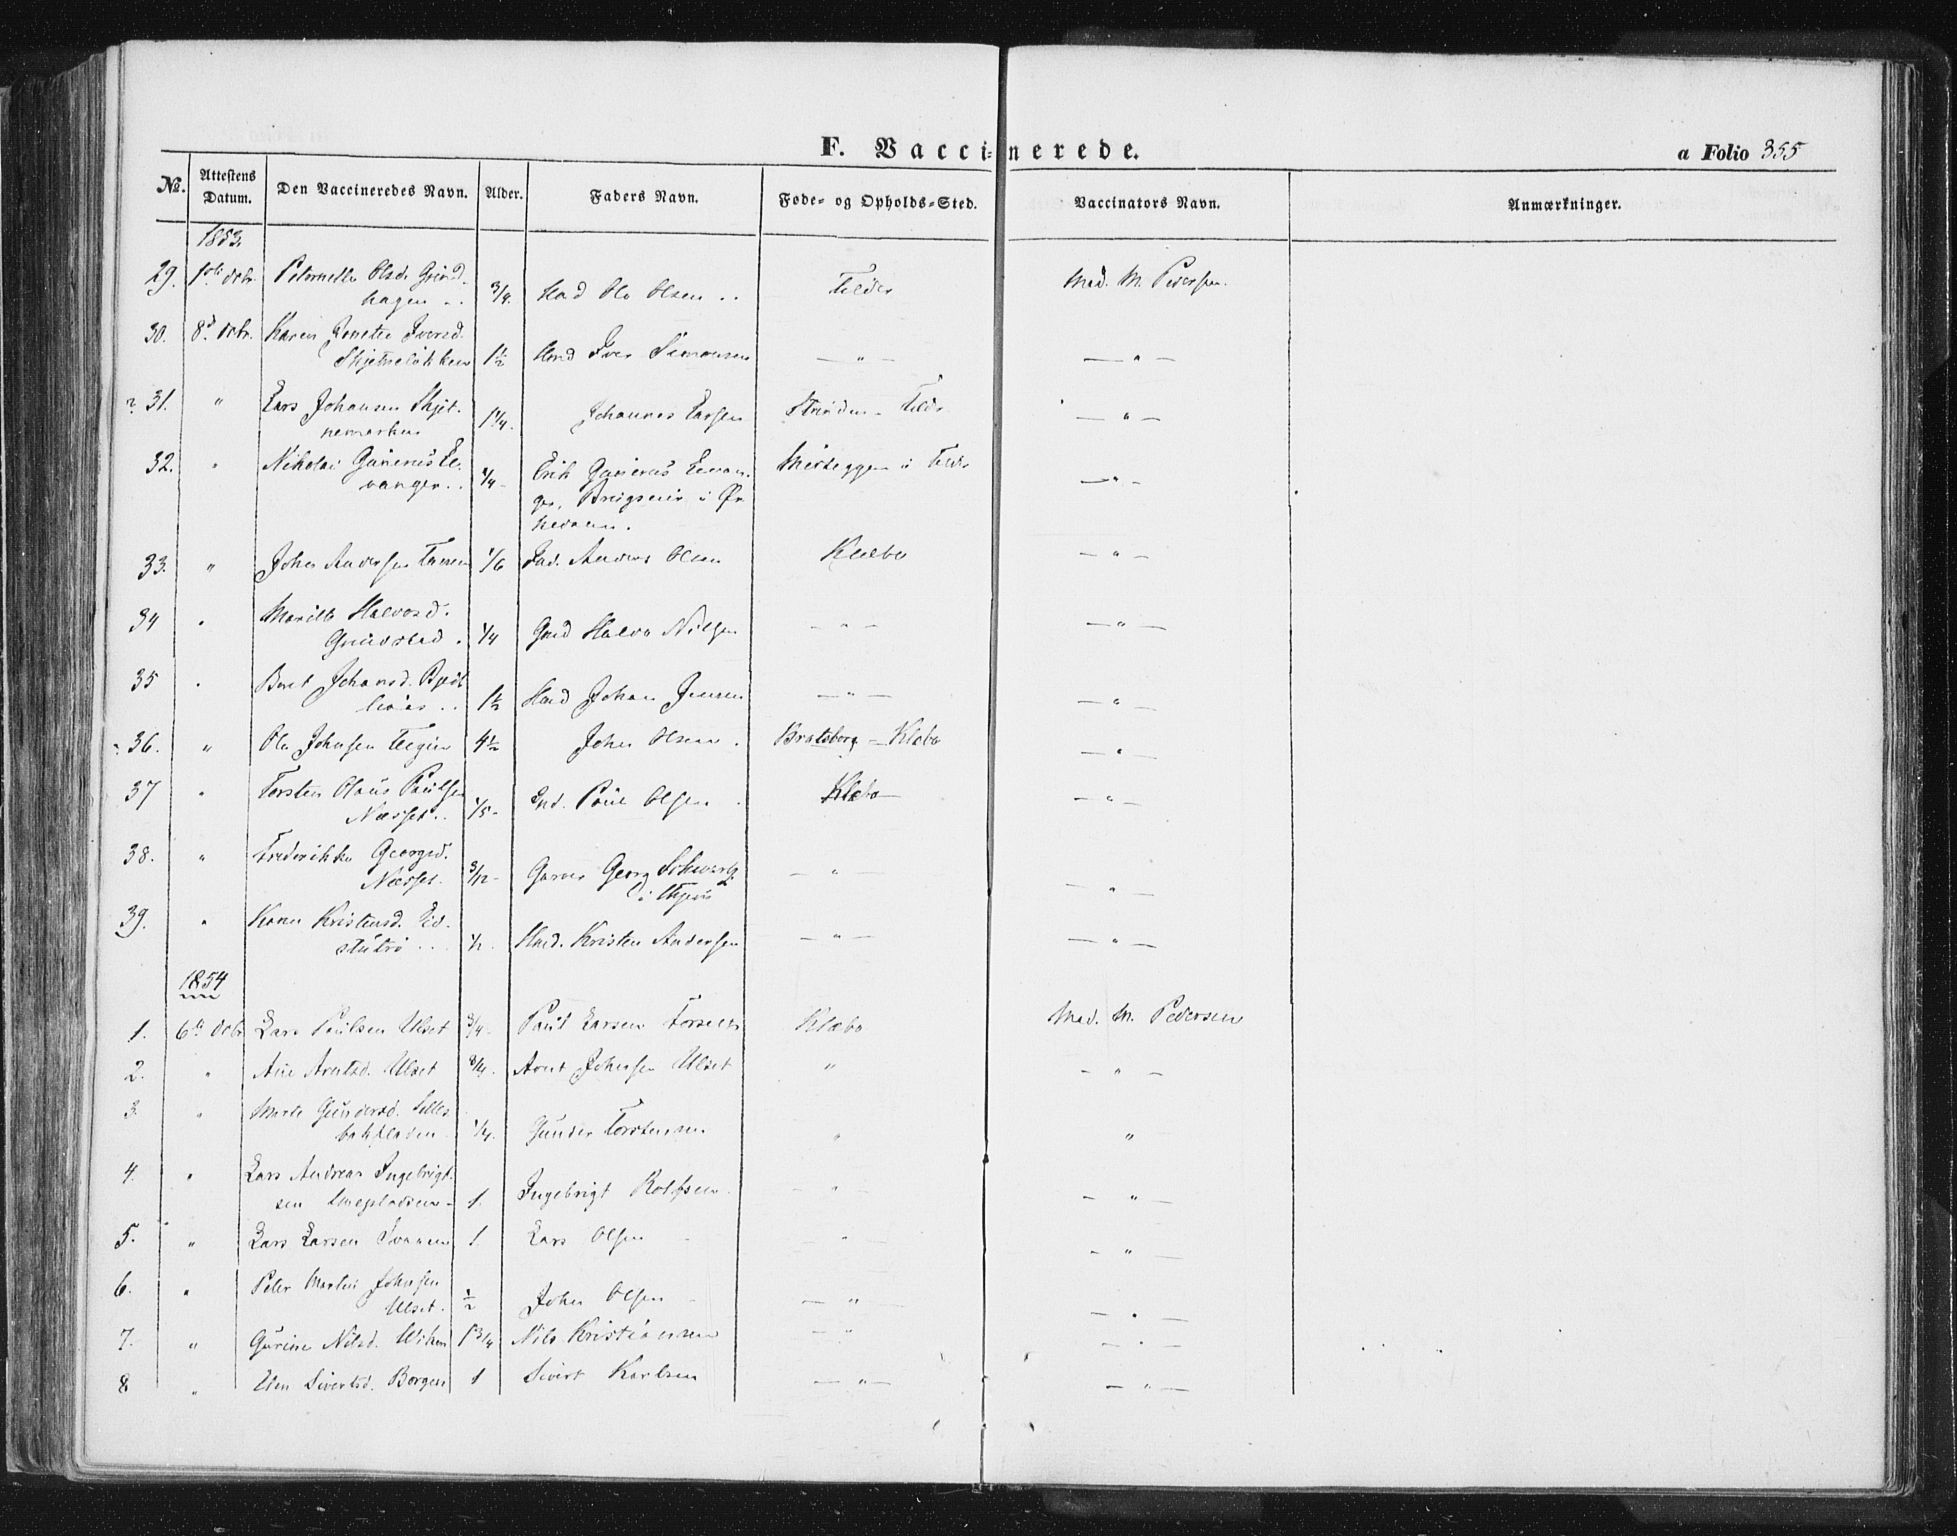 F. Vaccinerede.
a Folio 355
No. Attestens Datum. Den Vaccineredes Navn. Alder. Faders Navn. Føde- og Opholds-Sted. Vaccinators Navn. Anmærkninger.
1853.
29. 1ste Octbr. Peternelle Olsd. Grind-
hagen .. 3/4. Hmd Ole Olsen .. Tilder Mad. M. Pedersen.
30. 8d Octbr. Karen Iversd.
1½ Hmd Iver Simonsen — " — — " —
31. " Lars Johansen Skjet-
nemarken 1¼. Johannes Larsen Strinden - Tilder — " —
32. " Nikolai Gunerus Le-
vanger .. ¼ - Erik Gunerus Levan-
ger, i Tilder — " —
33. " John Andersen Tanem 1/6 Ind. Anders Olsen Klæbo — " —
34 " Marith Halvorsd.
¼ Gmd Halvor Nilsen — " — — " —
35 " Beret Johansd.
1½ Hmd Johan Jensen — " — — " —
36. " Ole Johnsen Teigen 4½ John Olsen . Bratsberg - Klæbo — " —
37 " Torsten Olaus Paulsen
Nesset .. 1/5 - Ind. Paul Olsen . Klæbo — " —
38. " Frederikke Georgsd.
Nesset. 3/12 - Garver Georg Schwartz
— " — — " —
39. " Karen Kristensd.
... ½. Hmd. Kristen Andersen — " — — " —
1854
1. 6te Octbr. Lars Paulsen Ulset 3/4 - Paul Larsen Klæbo Mad. M. Pedersen
2. " Ane Arntsd. Ulset 3/4. Arnt Johnsen Ulset " — " —
3. " Marte Gundersd.
¼. Gunder Torstensen " "
4. " Lars Andreas Ingebrigt-
sen 1. Ingebrigt Rolfsen — " — — " —
5. " Lars Larsen 1 Lars Olsen — " — — " —
6. " Peter Martin Johnsen
Ulset. ½ John Olsen — " — — " —
7. " Gurine Nilsd. 1 3/4 Nils Kristiansen — " — — " —
8 " Sivertsd. Borgen 1 Sivert Karlsen — " — — " —